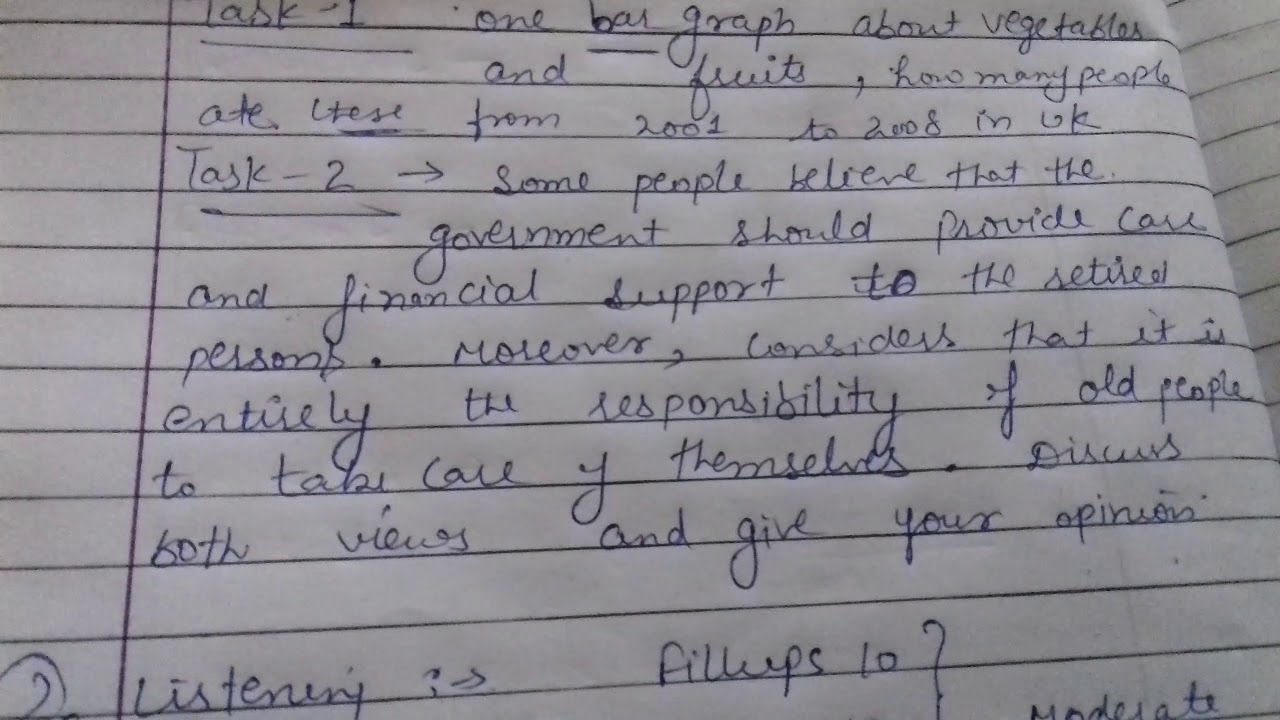 Task-1 one bar graph about vegetables
and fruits, how many people
ate these from 2001 to 2008 in UK
Task-2 → Some people believe that the.
government should provide care
and financial support to the retired
persons. Moreover, considers that it is
entirely the responsibility of old people
to take care of themselves. Discuss
both views and give your opinion.
2) Listening :→ Fillups 10
Moderate